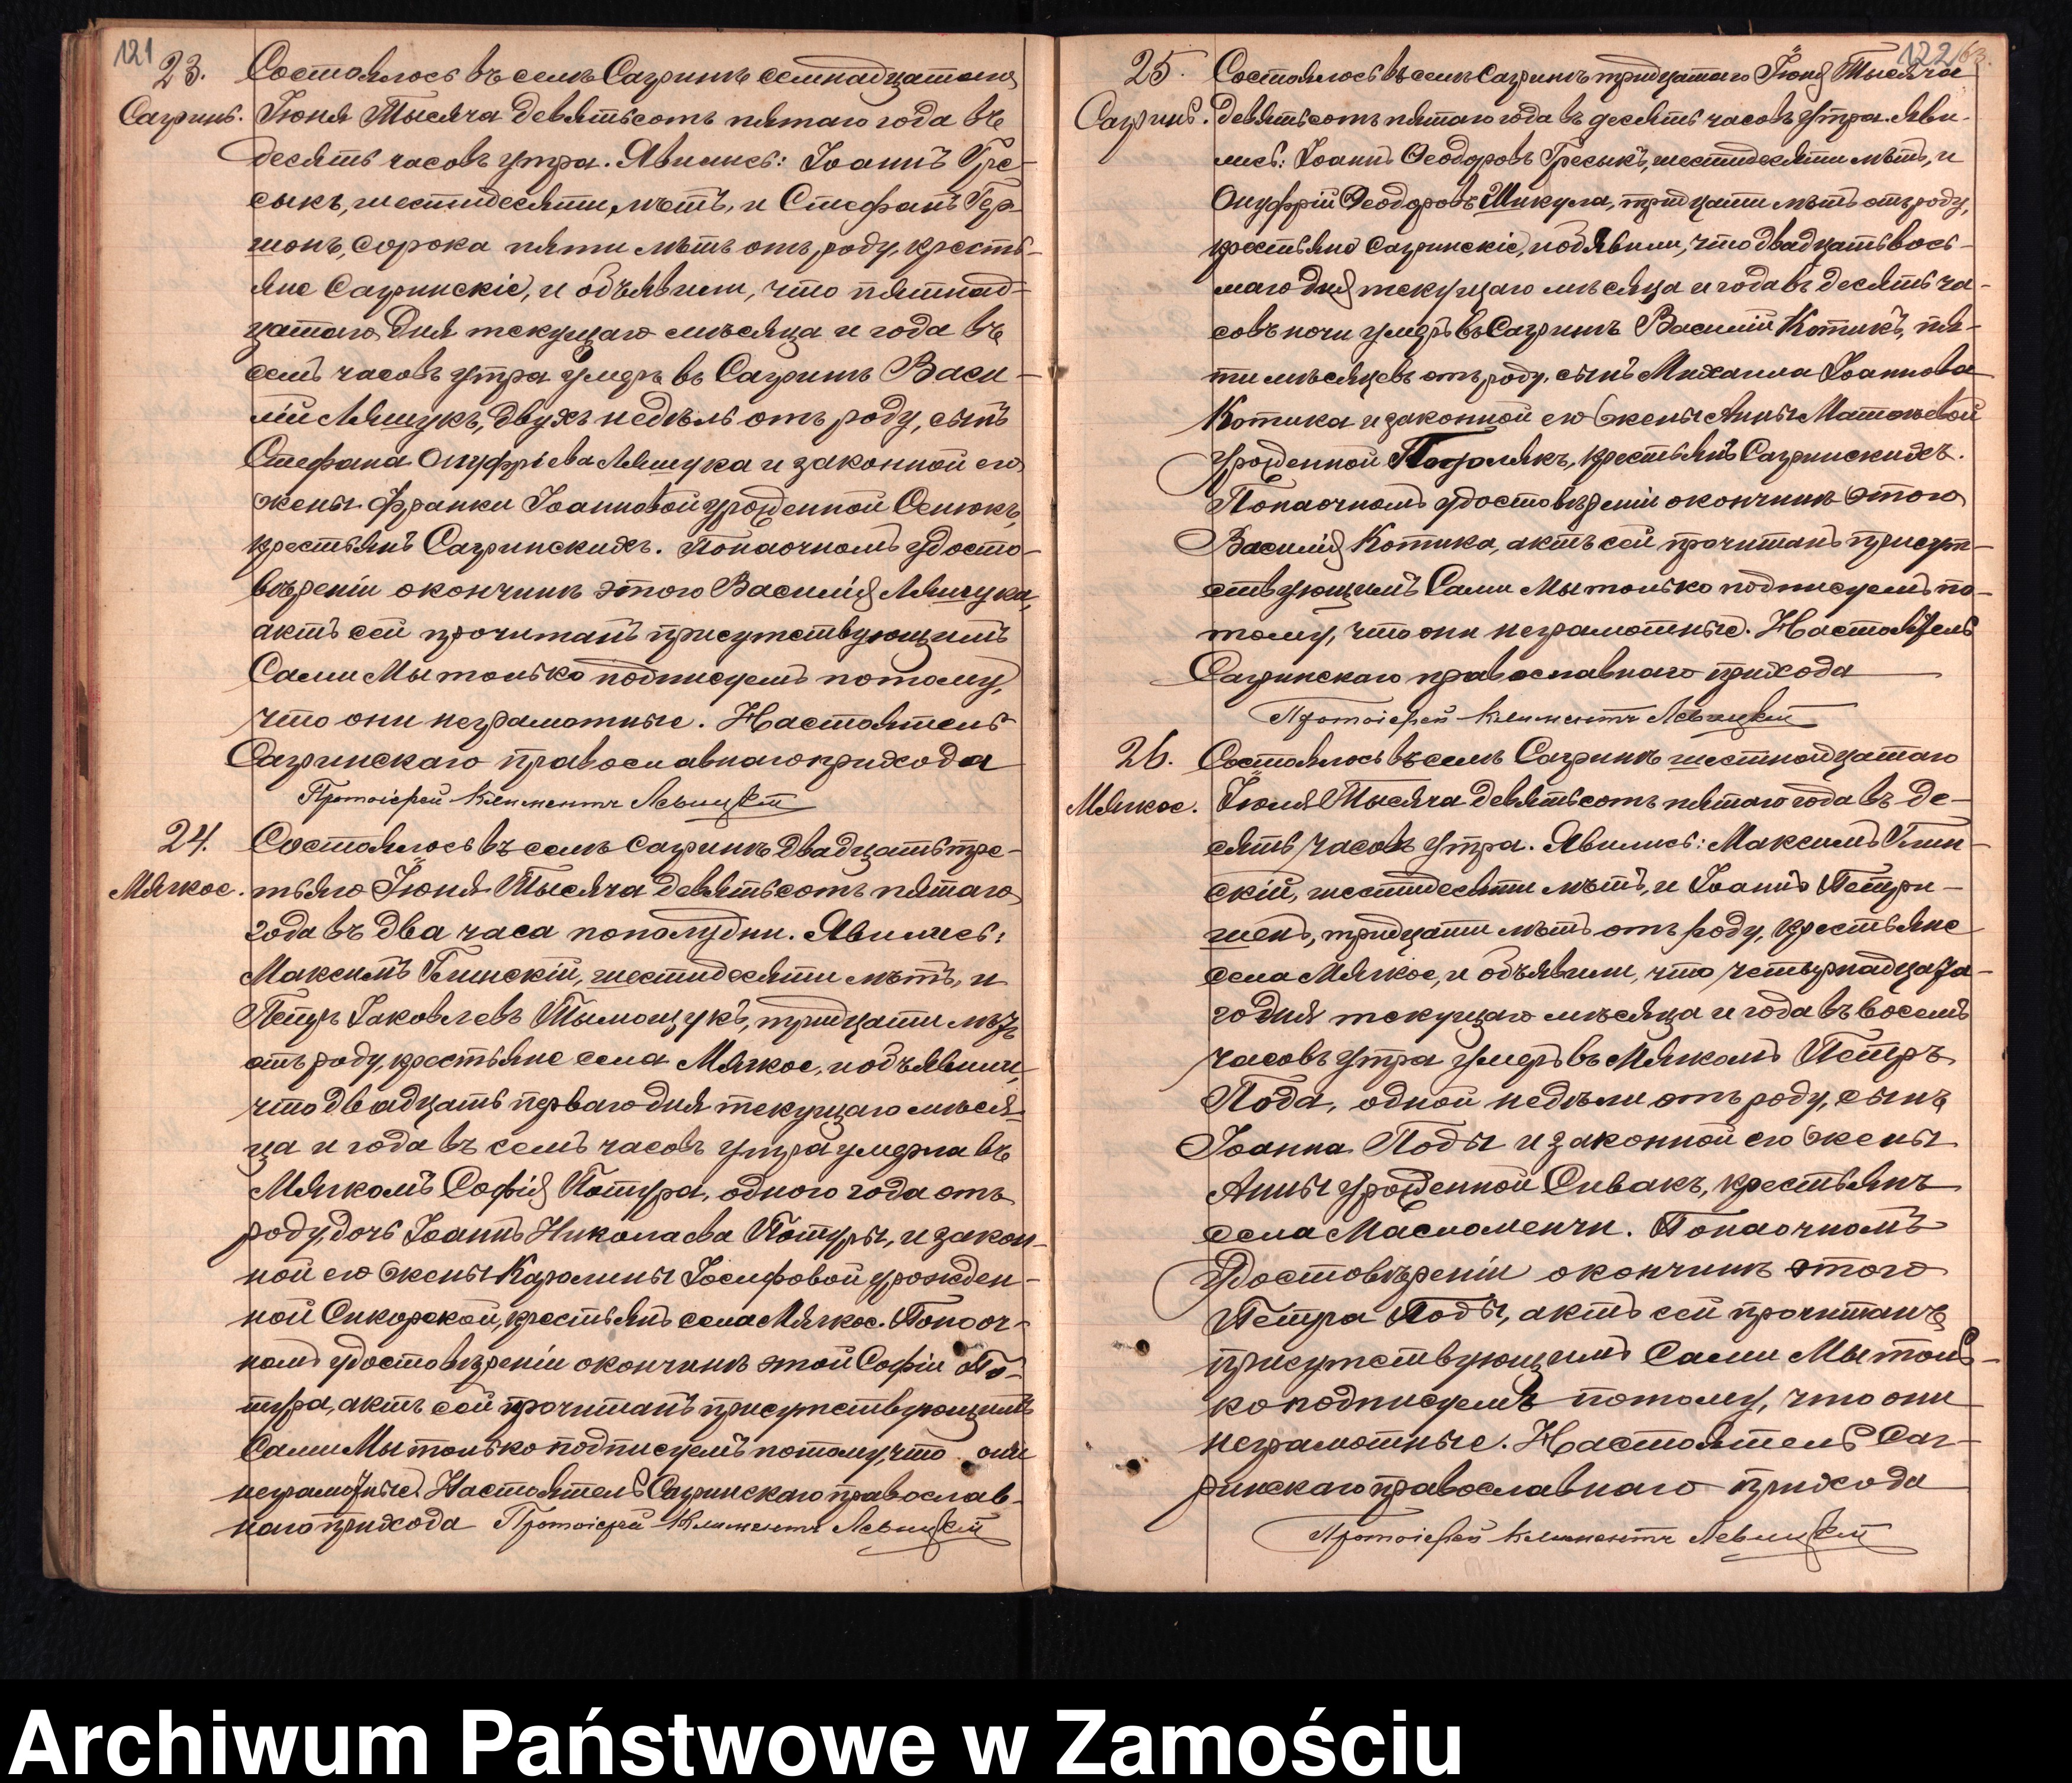 121
23.
Сагринь.
Состоялось въ селѣ Сагринѣ семнадцатаго
Іюня Тысяча девятьсотъ пятаго года въ
десять часовъ утра. Явились: Іоаннъ Гре-
сыкъ, шестидесяти лѣтъ, и Стефанъ Гер-
шонъ, сорока пяти лѣтъ отъ роду, кресть-
яне Сагринскіе, и объявили, что пятнад-
цатаго дня текущаго мѣсяца и года въ
семь часовъ утра умеръ въ Сагринѣ Васи-
лій Ляшукъ, двухъ недѣль отъ роду, сынъ
Стефана Онуфріева Ляшука и законной его
жены Франки Іоанновой урожденной Осиюкъ,
крестьянъ Сагринскихъ. По наочномъ удосто-
вѣреніи окончинѣ этого Василія Ляшука,
актъ сей прочитанъ присутствующимъ
Сами Мы только подписуемъ потому,
что они неграмотные. Настоятель
Сагринскаго православнаго прихода
Протоіерей Климентъ Левицкій
24.
Мягкое.
Состоялось въ селѣ Сагринѣ двадцать тре-
тьяго Іюня Тысяча девятьсотъ пятаго
года въ два часа пополудни. Явились:
Максимъ Глинскій, шестидесяти лѣтъ, и
Петръ Іаковлевъ Тымощукъ, тридцати лѣтъ
отъ роду, крестьяне села Мягкое, и объявили,
что двадцать перваго дня текущаго мѣся-
ца и года въ семь часовъ утра умерла въ
Мягкомъ Софія Потура, одного года отъ
роду, дочь Іоаннъ Николаева Потуры, и закон-
ной его жены Каролины Іосифовой урожден-
ной Сикорской, крестьянъ села Мягкое. По наоч-
номъ удостовѣреніи окончинѣ этой Софіи По-
тура, актъ сей прочитанъ присутствующимъ
Сами Мы только подписуемъ потому, что они
неграмотные. Настоятель Сагринскаго православ-
наго прихода Протоіерей Климентъ Левицкій
122
63.
25.
Сагринь.
Состоялось въ селѣ Сагринѣ тридцатаго Іюня Тысяча
девятьсотъ пятаго года въ десять часовъ утра. Яви-
лись: Іоаннъ Ѳеодоровъ Гресыкъ, шестидесяти лѣтъ, и
Онуфрій Ѳеодоровъ Шикула, тридцати лѣтъ отъ роду,
крестьяне Сагринскіе, и объявили, что двадцать вось-
маго дня текущаго мѣсяца и года въ десять ча-
совъ ночи умеръ въ Сагринѣ Василій Котикъ, пя-
ти мѣсяцевъ отъ роду, сынъ Михаила Іоаннова
Котика и законной его жены Анны Матѳеевой
урожденной крестьянъ Сагринскихъ.
По наочномъ удостовѣреніи окончинѣ этого
Василія Котика, актъ сей прочитанъ присут-
ствующимъ Сами Мы только подписуемъ по-
тому, что они неграмотные. Настоятель
Сагринскаго православнаго прихода
Протоіерей Климентъ Левицкій
26.
Мягкое.
Состоялось въ селѣ Сагринѣ шестнадцатаго
Іюля Тысяча девятьсотъ пятаго года въ де-
сять часовъ утра. Явились: Максимъ Глин-
скій, шестидесяти лѣтъ, и Іоаннъ Петри-
шенъ, тридцати лѣтъ отъ роду, крестьяне
села Мягкое, и объявили, что четырнадцата-
го дня текущаго мѣсяца и года въ восемь
часовъ утра умеръ въ Мягкомъ Петръ
Пода, одной недѣли отъ роду, сынъ
Іоанна Поды и законной его жены
Анны урожденной Сивакъ, крестьянъ
села Масломенчи. По наочномъ
удостовѣреніи окончинѣ этого
Петра Поды, актъ сей прочитанъ
присутствующимъ Сами Мы толь-
ко подписуемъ потому, что они
неграмотные. Настоятель Саг-
ринскаго православнаго прихода
Протоіерей Климентъ Левицкій
Archiwum Państwowe w Zamościu